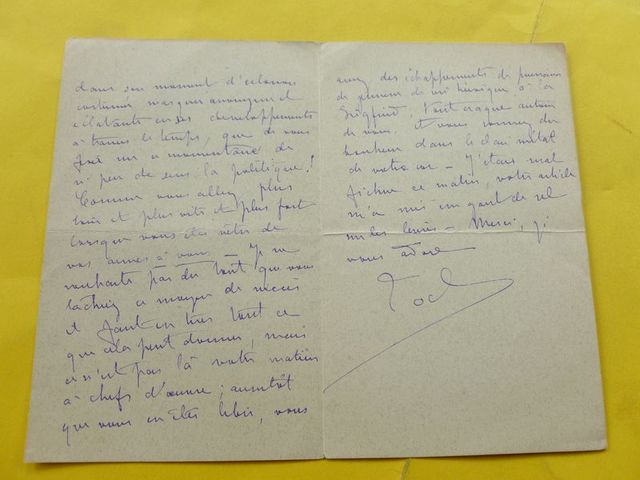 dans son moment d'
costumée
éclatante en ses développements
à travers le temps, que de vous
momentané de
n'i peu de sens la politique!
Comme vous allez plus
loin et plus vite et plus fort
lorsque vous êtes vêtu de
vos armes à vous. — Je ne
souhaite pas du tout que vous
lâchiez ce moyen de succès
et faut en tirer tout ce
que cela peut donner, mais
ce n'est pas là votre matière
à chefs d'œuvre; aussitôt
que vous en êtes libéré, vous
avez des échappements de
de héroïque à la
Siegfried. Tout craque autour
de vous. Et vous sonnez du
bonheur dans le clair métal
de votre cor — J'étais mal
fichue ce matin, votre article
m'a mis un goût de sel
sur les lèvres — Merci, je
vous adore